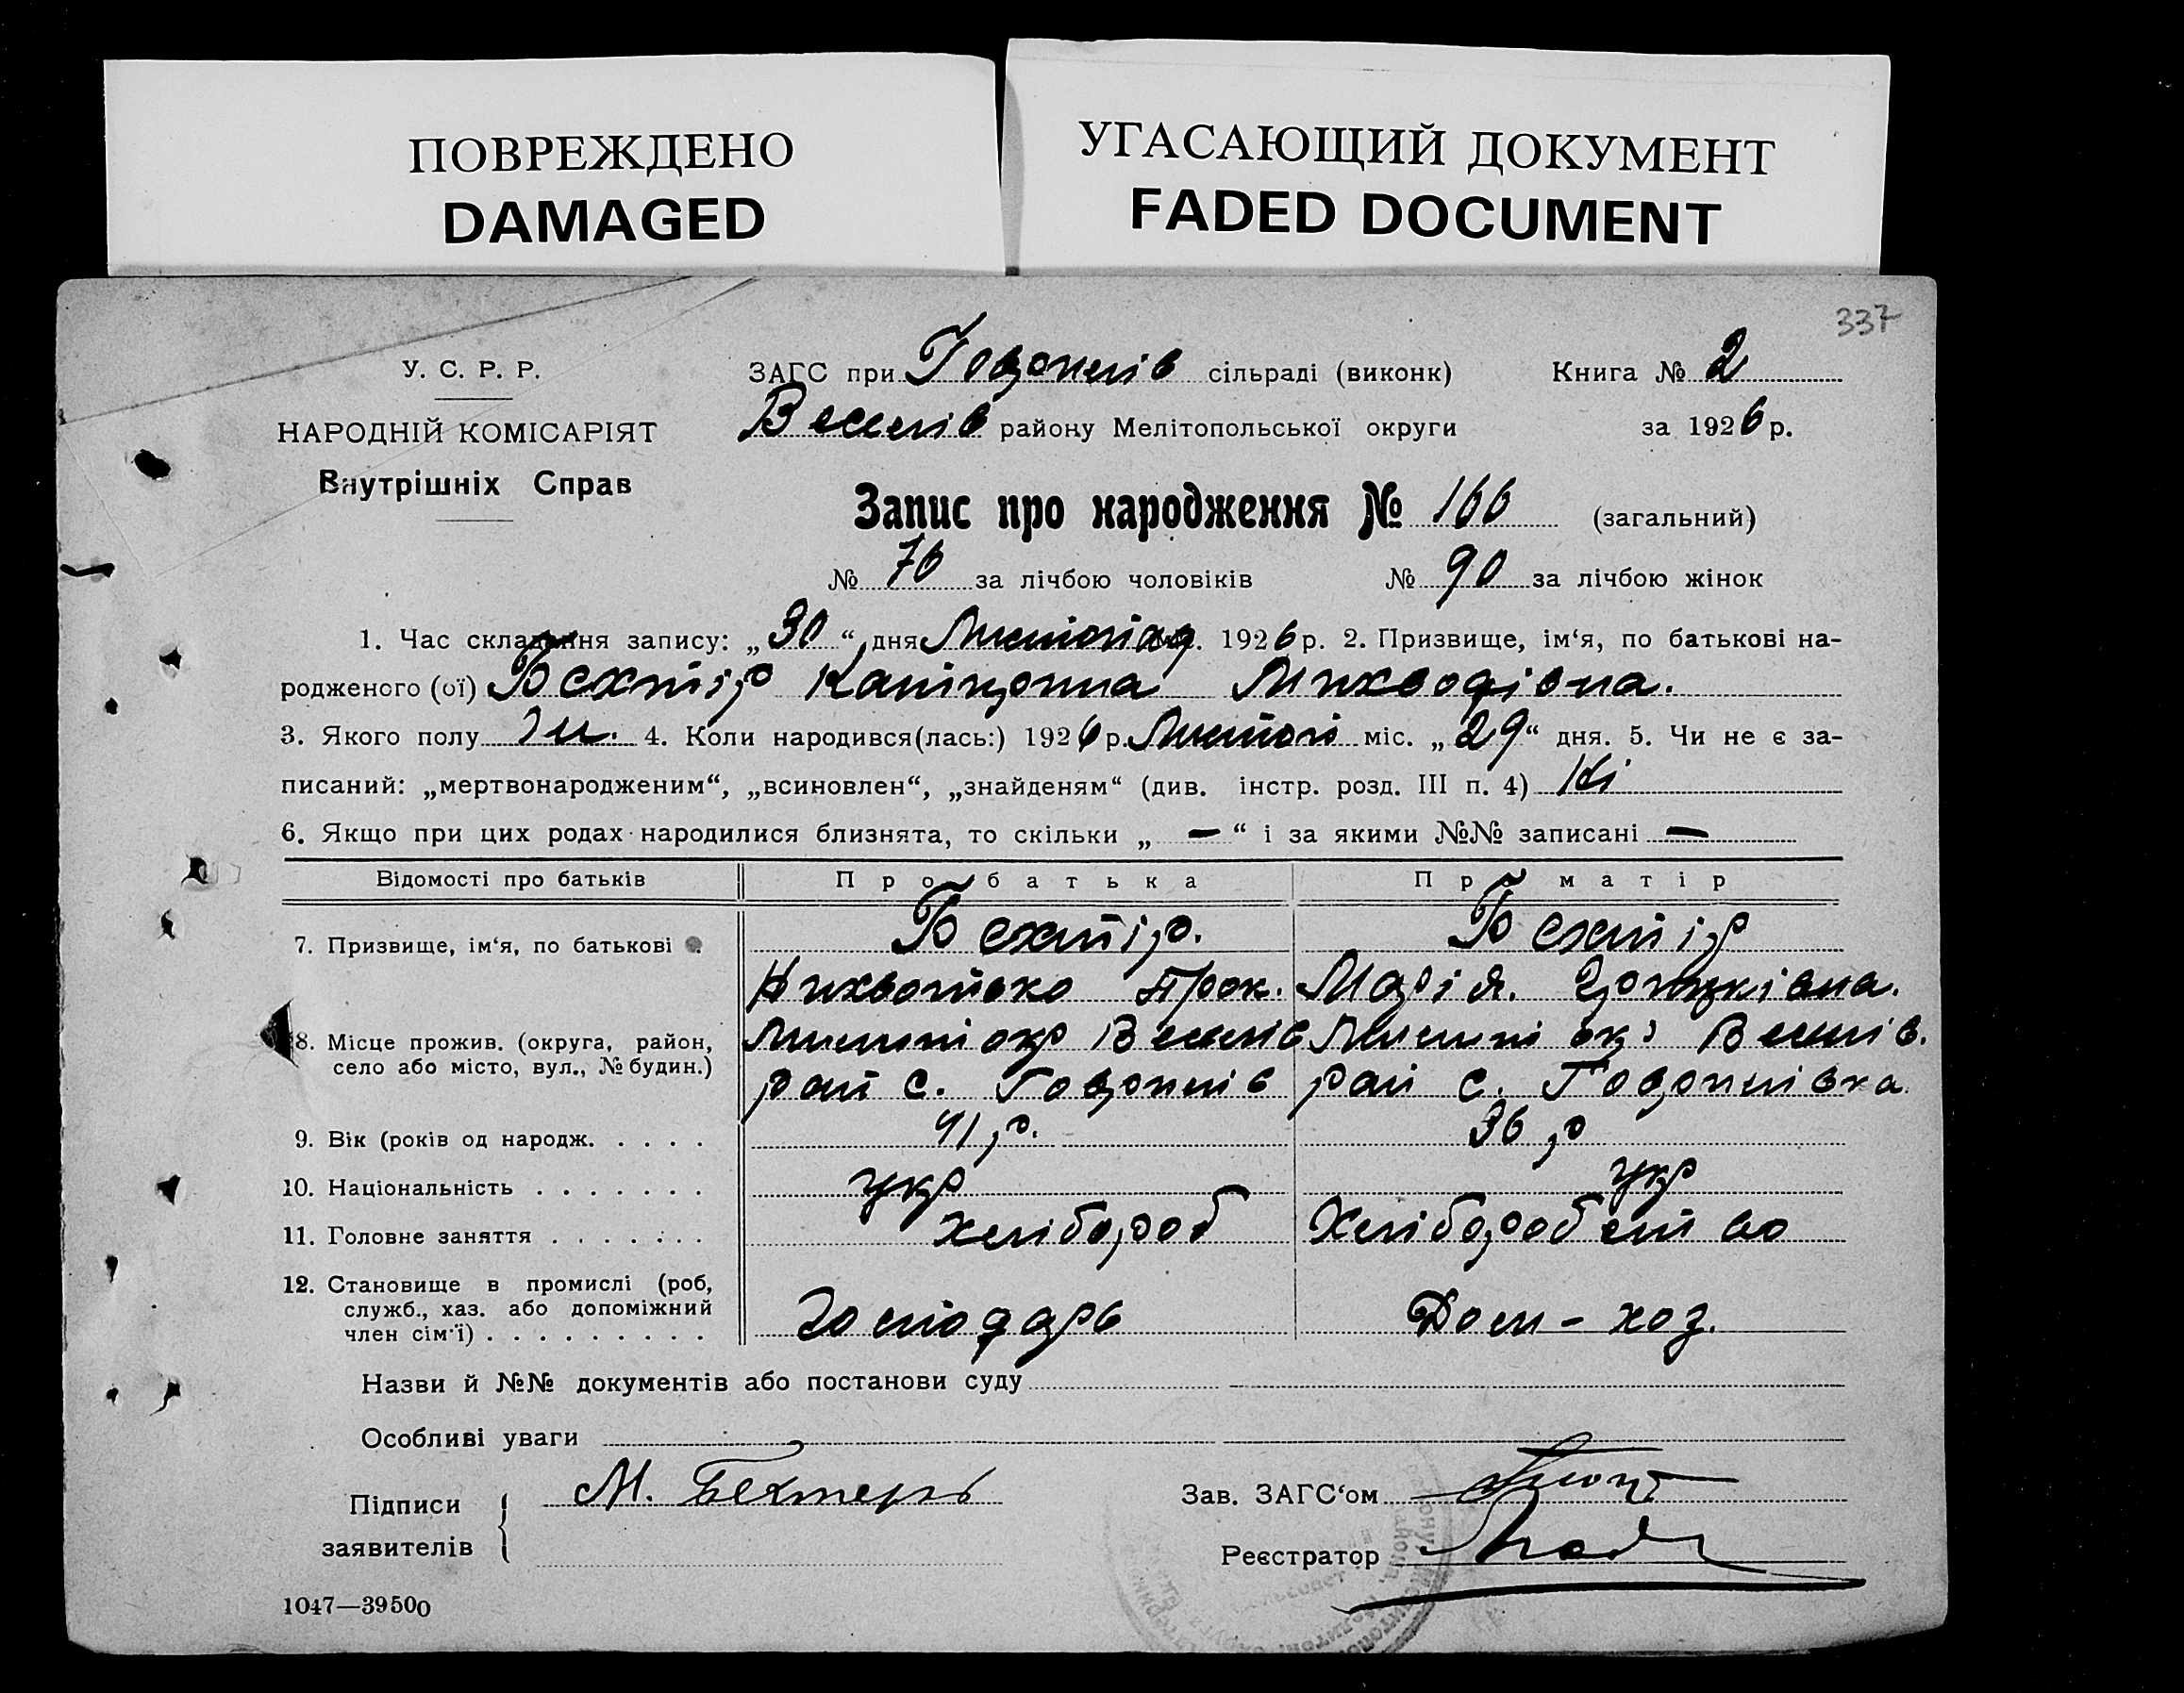 ПОВРЕЖДЕНО
DAMAGED
УГАСАЮЩИЙ ДОКУМЕНТ
FADED DOCUMENT
337
У. С. Р. Р.
НАРОДНІЙ КОМІСАРІЯТ
Внутрішніх Справ
ЗАГС при сільраді (виконк) Книга № 2
Веселів району Мелітопольської округи за 1926 р.
Запис про народження № 166 (загальний)
№ 76 за лічбою чоловіків № 90 за лічбою жінок
1. Час складання запису: „30“ дня Листопад 1926 р. 2. Призвище, ім‘я, по батькові на-
родженого (ої) Бехтір
3. Якого полу Жи. 4. Коли народився(лась:) 1926 р. Листоп міс. „29“ дня. 5. Чи не є за-
писаний: „мертвонародженим“, „всиновлен“, „знайденям“ (див. інстр. розд. III п. 4) Ні
6. Якщо при цих родах народилися близнята, то скільки „ — “ і за якими №№ записані —
Відомості про батьків Про батька Про матір
7. Призвище, ім‘я, по батькові Бехтір. Бехтір
Прок. Марія.
8. Місце прожив. (округа, район, село або місто, вул., № будин.) окр Веселів Веселів.
рай с. рай с.
9. Вік (років од народж. . . . . 41 р. 36 р
10. Національність . . . . . . . укр укр
11. Головне заняття . . . . . . . хлібороб Хліборобство
12. Становище в промислі (роб, служб., хаз. або допоміжний член сім‘ї) . . . . . . . . . Господарь Дом - хоз.
Назви й №№ документів або постанови суду
Особливі уваги
Підписи заявителів М. Бехтерь
Зав. ЗАГС‘ом
Реєстратор
1047—39500